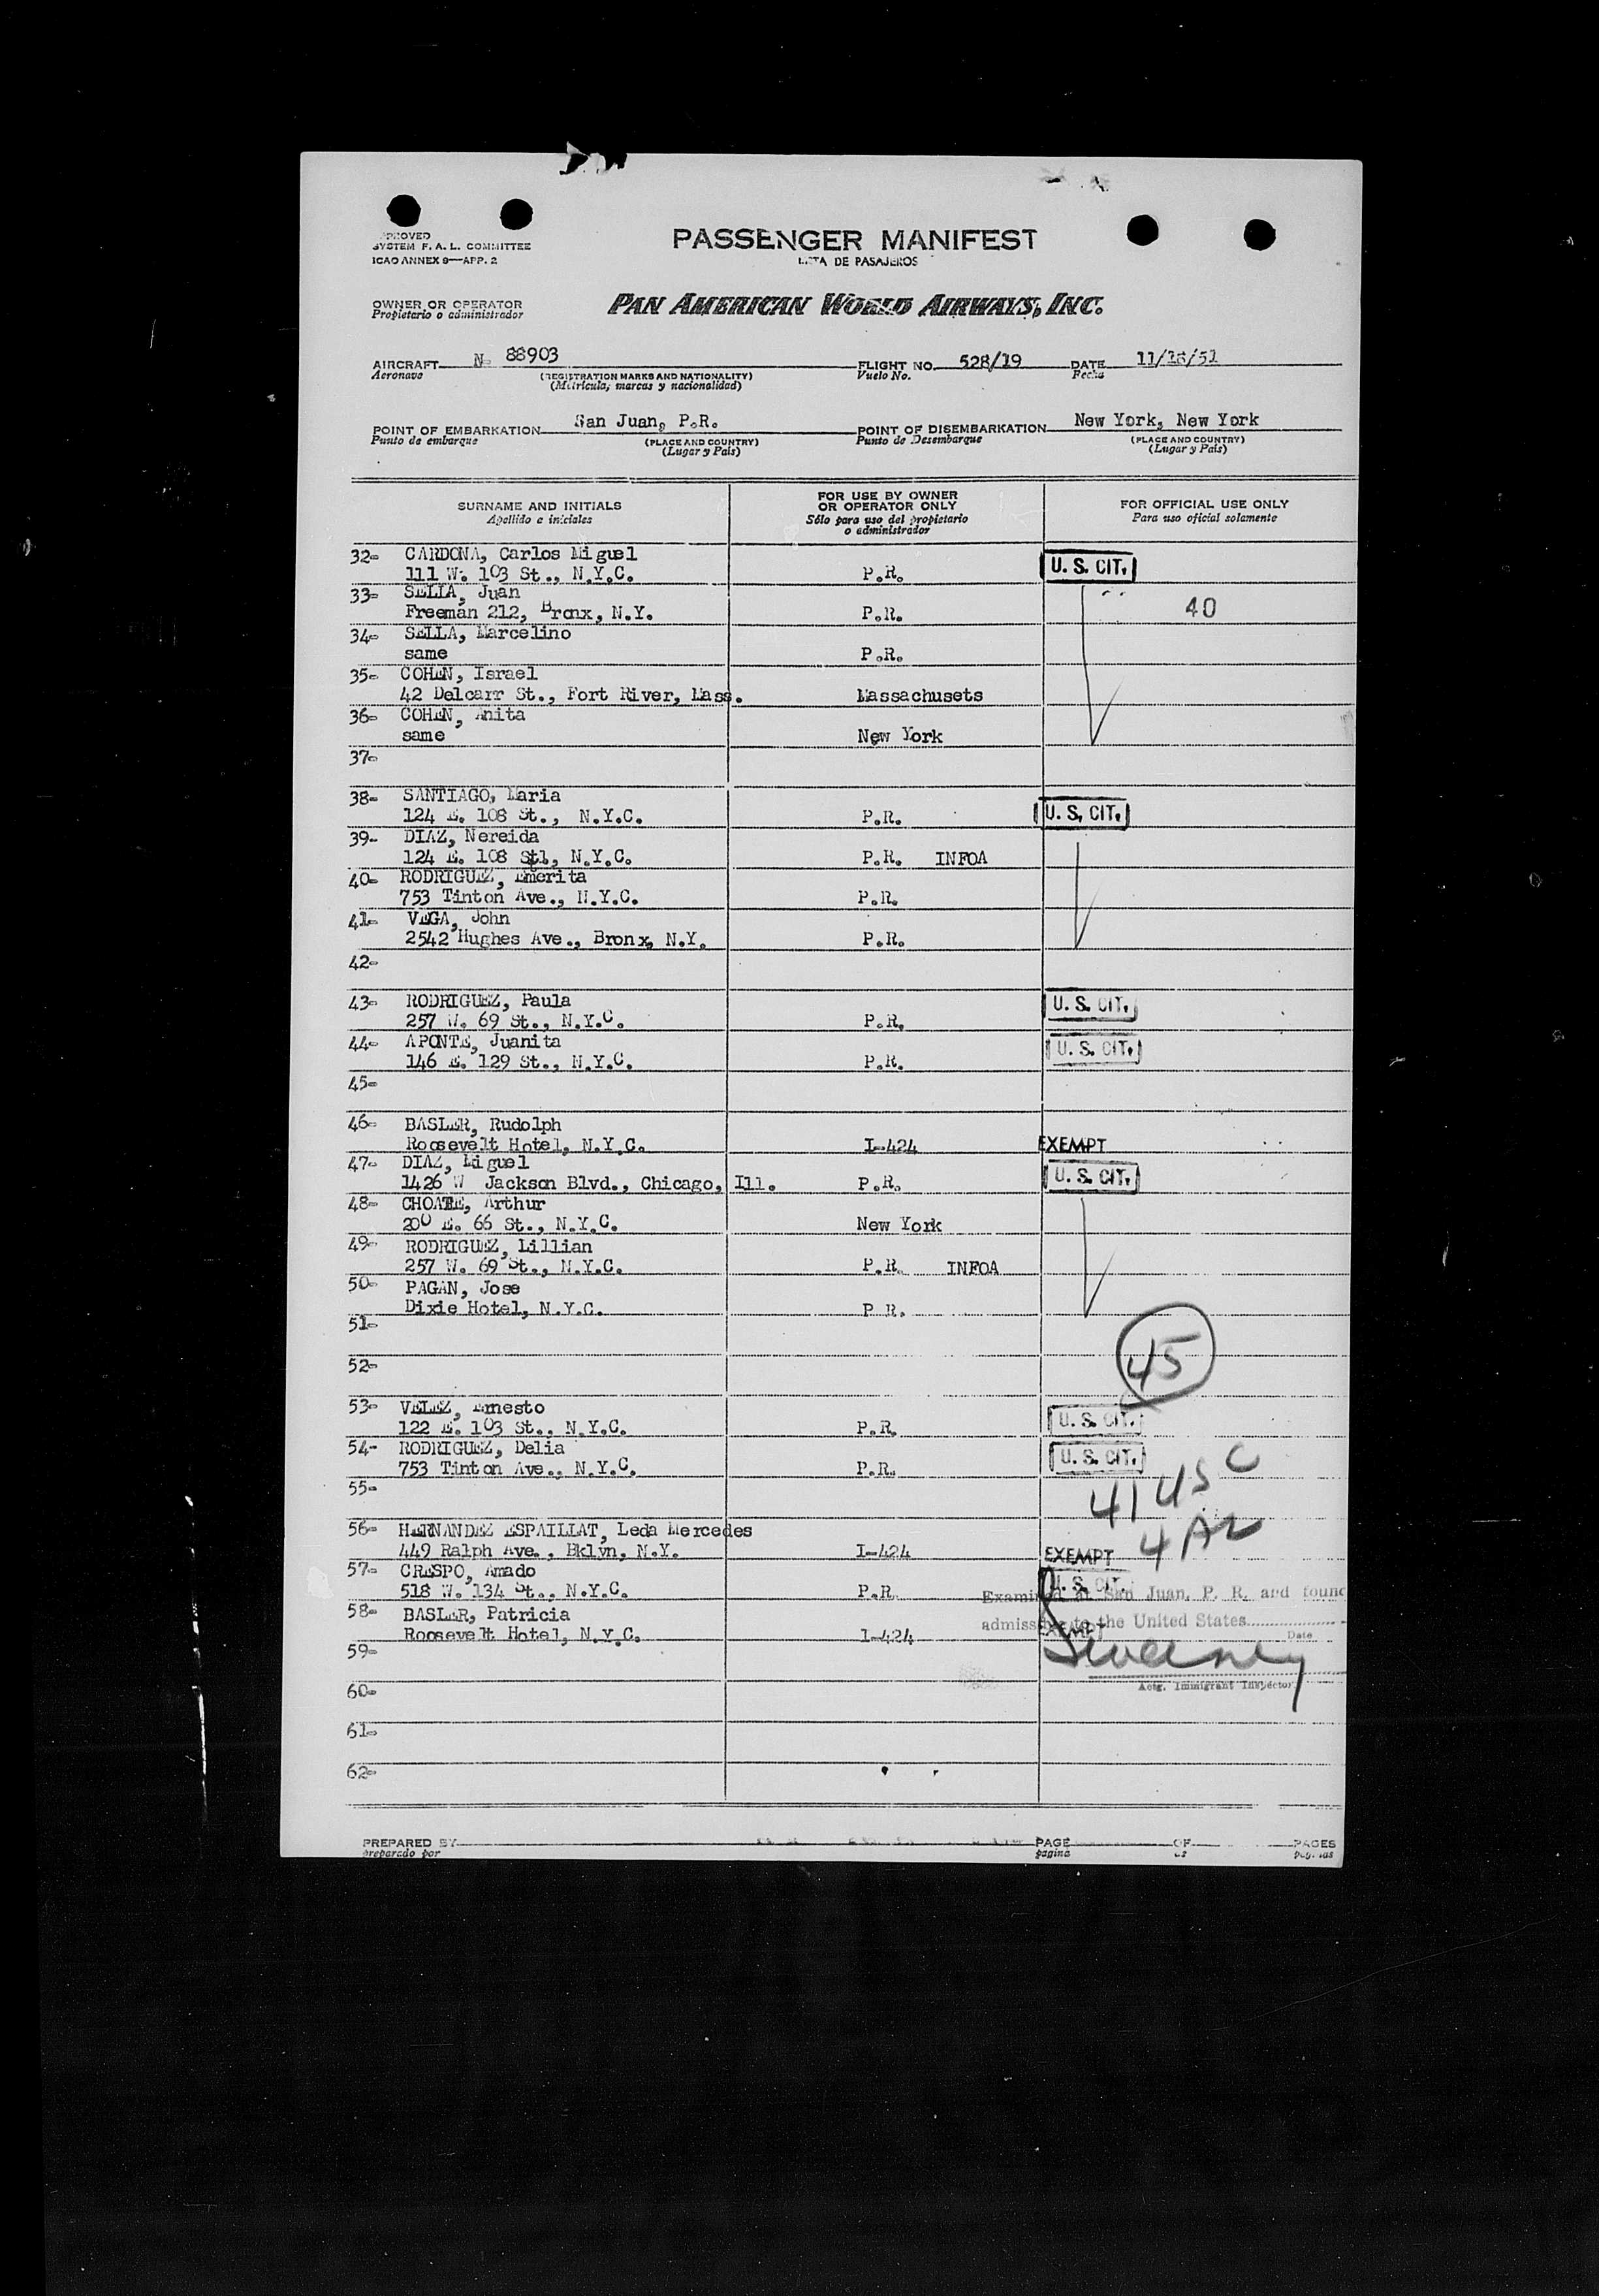 PROVED
SYSTEM F. A. L. COMMITTEE
ICAO ANNEX 9—APP. 2
PASSENGER MANIFEST
LISTA DE PASAJEROS
OWNER OR OPERATOR
Propietario o administrador
PAN AMERICAN WORLD AIRWAYS, INC.
AIRCRAFT N- 88903 FLIGHT NO. 528/19 DATE 11/18/51
Aeronave (REGISTRATION MARKS AND NATIONALITY) Vuelo No. Fecha
(Matrícula, marcas y nacionalidad)
POINT OF EMBARKATION San Juan, P.R. POINT OF DISEMBARKATION New York, New York
Punto de embarque (PLACE AND COUNTRY) Punto de Desembarque (PLACE AND COUNTRY)
(Lugar y País) (Lugar y País)
SURNAME AND INITIALS
Apellido e iniciales
FOR USE BY OWNER
OR OPERATOR ONLY
Sólo para uso del propietario
o administrador
FOR OFFICIAL USE ONLY
Para uso oficial solamente
32- CARDONA, Carlos Miguel
111 W. 103 St., N.Y.C. P.R. U. S. CIT.
33- SELLA, Juan
Freeman 212, Bronx, N.Y. P.R. 40
34- SELLA, Marcelino
same P.R.
35- COHEN, Israel
42 Delcarr St., Fort River, Mass. Massachusets
36- COHEN, Anita
same New York
37-
38- SANTIAGO, Maria
124 E. 108 St., N.Y.C. P.R. U. S. CIT.
39- DIAZ, Nereida
124 E. 108 Stl, N.Y.C. P.R. INFOA
40- RODRIGUEZ, Emerita
753 Tinton Ave., N.Y.C. P.R.
41- VEGA, John
2542 Hughes Ave., Bronx, N.Y. P.R.
42-
43- RODRIGUEZ, Paula
257 W. 69 St., N.Y.C. P.R. U. S. CIT.
44- APONTE, Juanita
146 E. 129 St., N.Y.C. P.R. U. S. CIT.
45-
46- BASLER, Rudolph
Roosevelt Hotel, N.Y.C. I-424 EXEMPT
47- DIAZ, Miguel
1426 W Jackson Blvd., Chicago, Ill. P.R. U. S. CIT.
48- CHOATE, Arthur
200 E. 66 St., N.Y.C. New York
49- RODRIGUEZ, Lillian
257 W. 69 St., N.Y.C. P.R. INFOA
50- PAGAN, Jose
Dixie Hotel, N.Y.C. P R.
51-
52- 45
53- VELEZ, Ernesto
122 E. 103 St., N.Y.C. P.R. U. S. CIT.
54- RODRIGUEZ, Delia
753 Tinton Ave., N.Y.C. P.R. U. S. CIT.
55- 41 USC
56- HERNANDEZ ESPAILLAT, Leda Mercedes
449 Ralph Ave., Bklyn, N.Y. I-424 EXEMPT 4
57- CRESPO, Amado
518 W. 134 St., N.Y.C. P.R. U. S. CIT.
Examined at San Juan, P. R. and found
58- BASLER, Patricia
admissible to the United States
Roosevelt Hotel, N.Y.C. I-424 EXEMPT Date
59- Sweeney
60- Actg. Immigrant Inspector
61-
62-
PREPARED BY PAGE OF PAGES
preparado por página de páginas